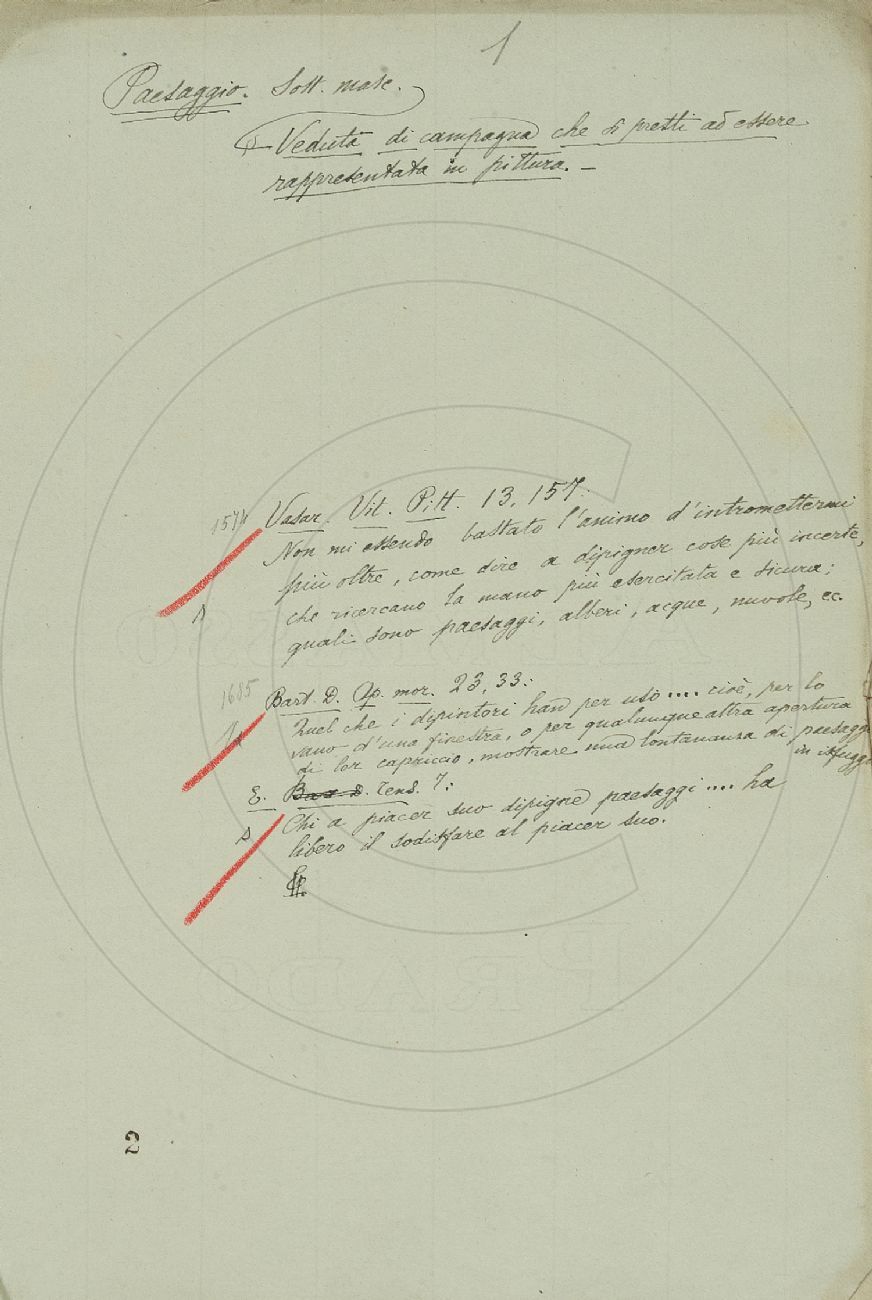 1
Paesaggio. Sost. masc.
Veduta di campagna che si presti ad essere
rappresentata in pittura. —
1574
Vasar. Vit. Pitt. 13, 157:
Non mi essendo bastato l'animo d'intromettermi
più oltre, come dire a dipigner cose più incerte,
che ricercano la mano più esercitata e sicura;
quali sono paesaggi, alberi, acque, nuvole, ec.
1685
Bart. D. Op. mor. 23, 33:
Quel che i dipintori han per uso .... cioè, per lo
vano d'una finestra, o per qualunque altra apertura
di lor capriccio, mostrare una lontananza di paesaggi
in isfuggi
E. Tens. 7:
Chi a piacer suo dipigne paesaggi .... ha
libero il sodisfare al piacer suo.
PRADO
2